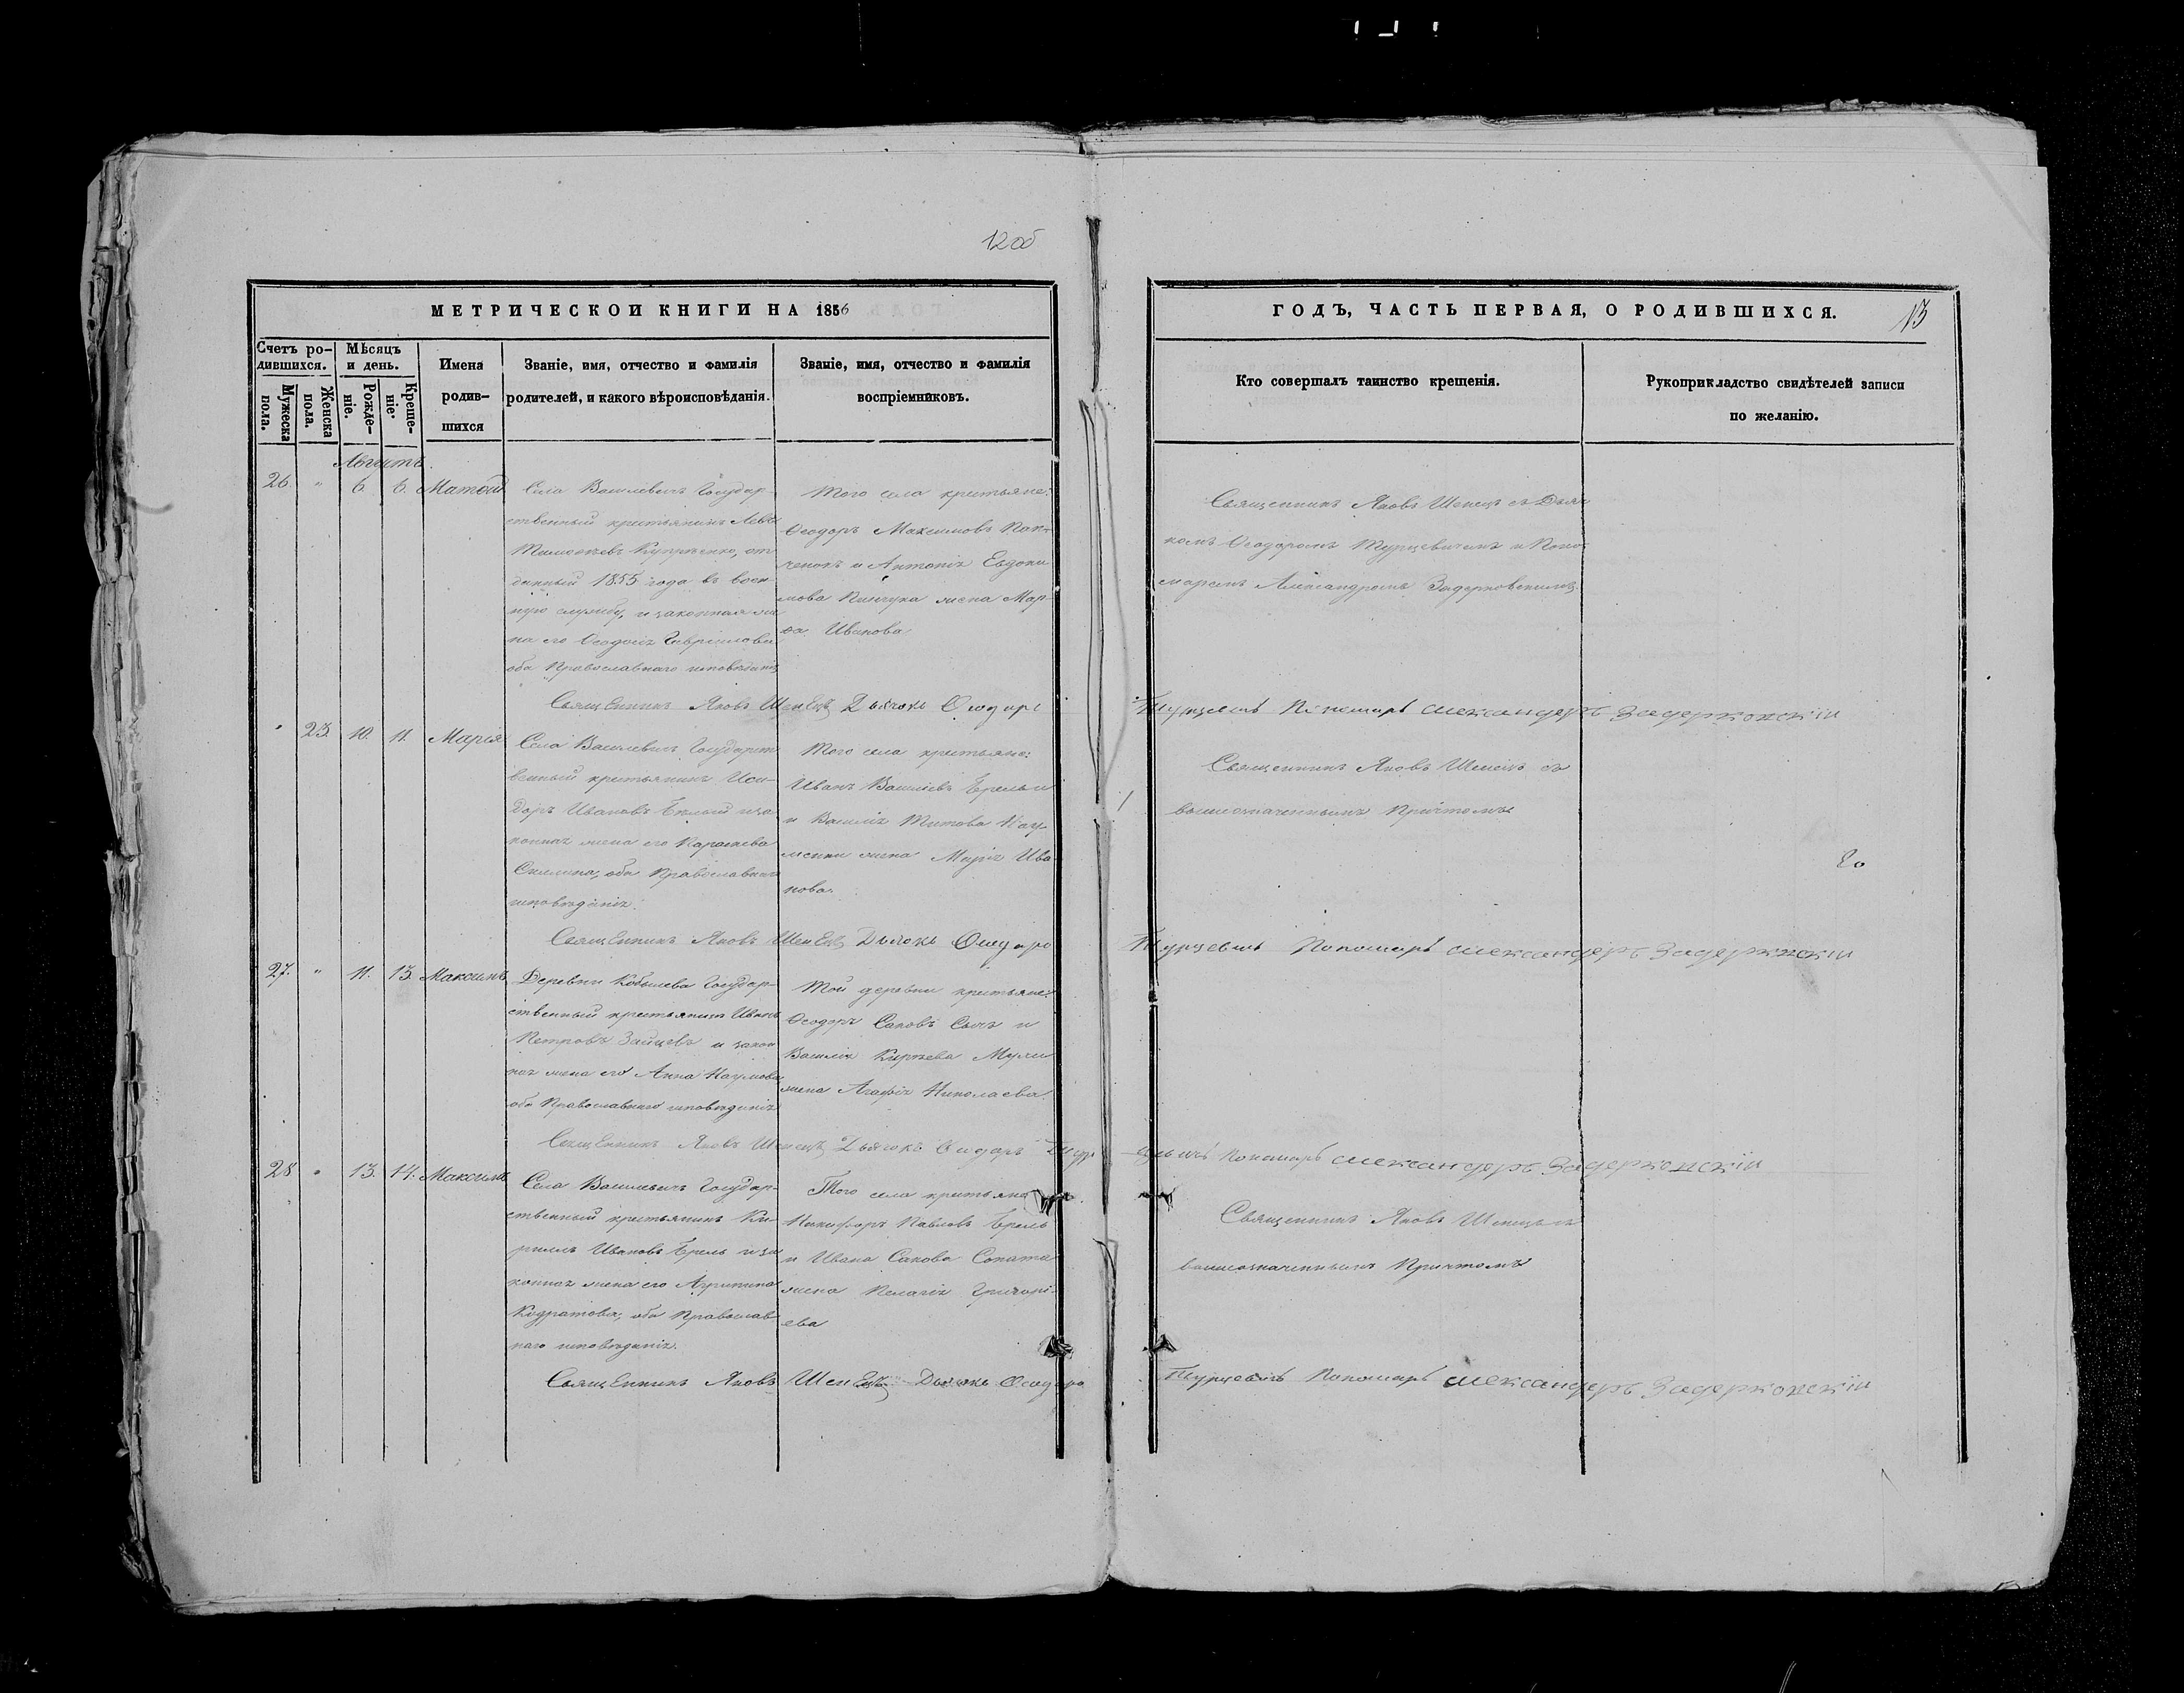 12 об
МЕТРИЧЕСКОЙ КНИГИ НА 1856
Счетъ ро-
дившихся.
Мужеска
пола.
Женска
пола.
Мѣсяцъ
и день.
Рожде-
ніе.
Креще-
ніе.
Имена
родив-
шихся
Званіе, имя, отчество и фамилія
родителей, и какого вѣроисповѣданія.
Званіе, имя, отчество и фамилія
воспріемниковъ.
Августъ
26. " 6. 6. Матѳей
Села Василевичъ Государ-
ственный крестьянинъ
отъ
данный 1855 года въ воен-
ную службу, и законная же
на его Ѳеодосія Гавріилова
оба Православнаго исповѣданія
Того села крестьяне:
Ѳеодоръ Максимовъ
и Антонія Евдоки
мова Пинчука жена Мар-
ѳа Иванова
Священникъ Яковъ Шенецъ Дьячокъ Ѳеодоръ
" 23. 10. 11. Марія
Села Василевичъ Государст
венный крестьянинъ Иси-
доръ Ивановъ Бѣлый и за
конная жена его Параскева
оба Православнаго
исповѣданія.
Того села крестьяне:
Иванъ Василіевъ Брель
и Василія Титова Нау-
менки жена Марія Ива
нова.
Священникъ Яковъ Шенецъ Дьячокъ Ѳеодоръ
27. " 11. 13. Максимъ
Деревни Кобылева Государ-
ственный крестьянинъ Иванъ
Петровъ Зайцевъ и закон
ная жена его Анна Наумова
оба Православнаго исповѣданія
Той деревни крестьяне:
Ѳеодоръ Саковъ Сычъ и
Василія Кирѣева
жена Агафія Николаева
Священникъ Яковъ Шенецъ Дьячокъ Ѳеодоръ Турц
28 " 13. 14. Максимъ
Села Василевичъ Государ-
ственный крестьянинъ Ки-
риллъ Ивановъ Брель и за
конная жена его Агрипина
Кодратова, оба Православ-
наго исповѣданія.
Того села крестьяне
Никифоръ Павловъ Брель
и Ивана Сакова
жена Пелагія Григорі-
ева
Священникъ Яковъ Шенецъ Дьячокъ Ѳеодоръ
ГОДЪ, ЧАСТЬ ПЕРВАЯ, О РОДИВШИХСЯ.
13
Кто совершалъ таинство крещенія.
Рукоприкладство свидѣтелей записи
по желанію.
Священникъ Яковъ Шенецъ съ Дьяч
комъ Ѳеодоромъ Турцевичемъ и Поно-
маремъ Александромъ Задерковскимъ
Турцевичъ Пономарь Александеръ Задерковскій
Священникъ Яковъ Шенецъ съ
вышеозначеннымъ Причтомъ
Турцевичъ Пономарь Александеръ Задерковскій
евичъ Пономарь Александеръ Задерковскій
Священникъ Яковъ Шенецъ съ
вышеозначеннымъ Причтомъ
Турцевичъ Пономарь Александеръ Задерковскій